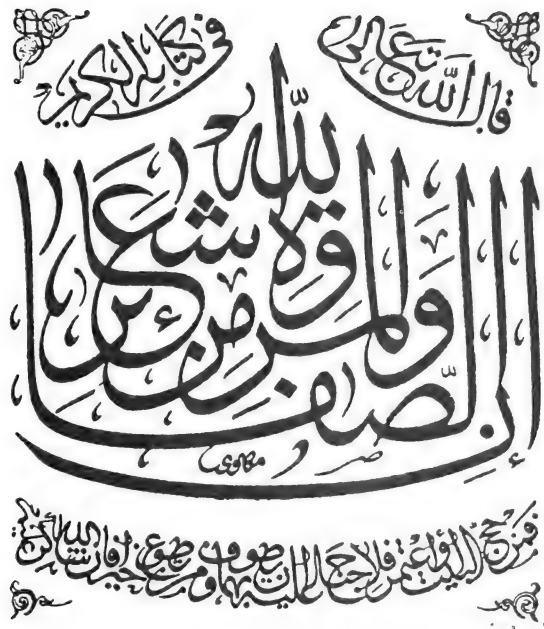 قال الله تعالى
في كتابه الكريم
إن الصفا والمروة من شعائر الله
مكاوى
فمن حج البيت أو اعتمر فلا جناح عليه أن يطوف بهما ومن تطوع خيرا فإن الله شاكر عليم